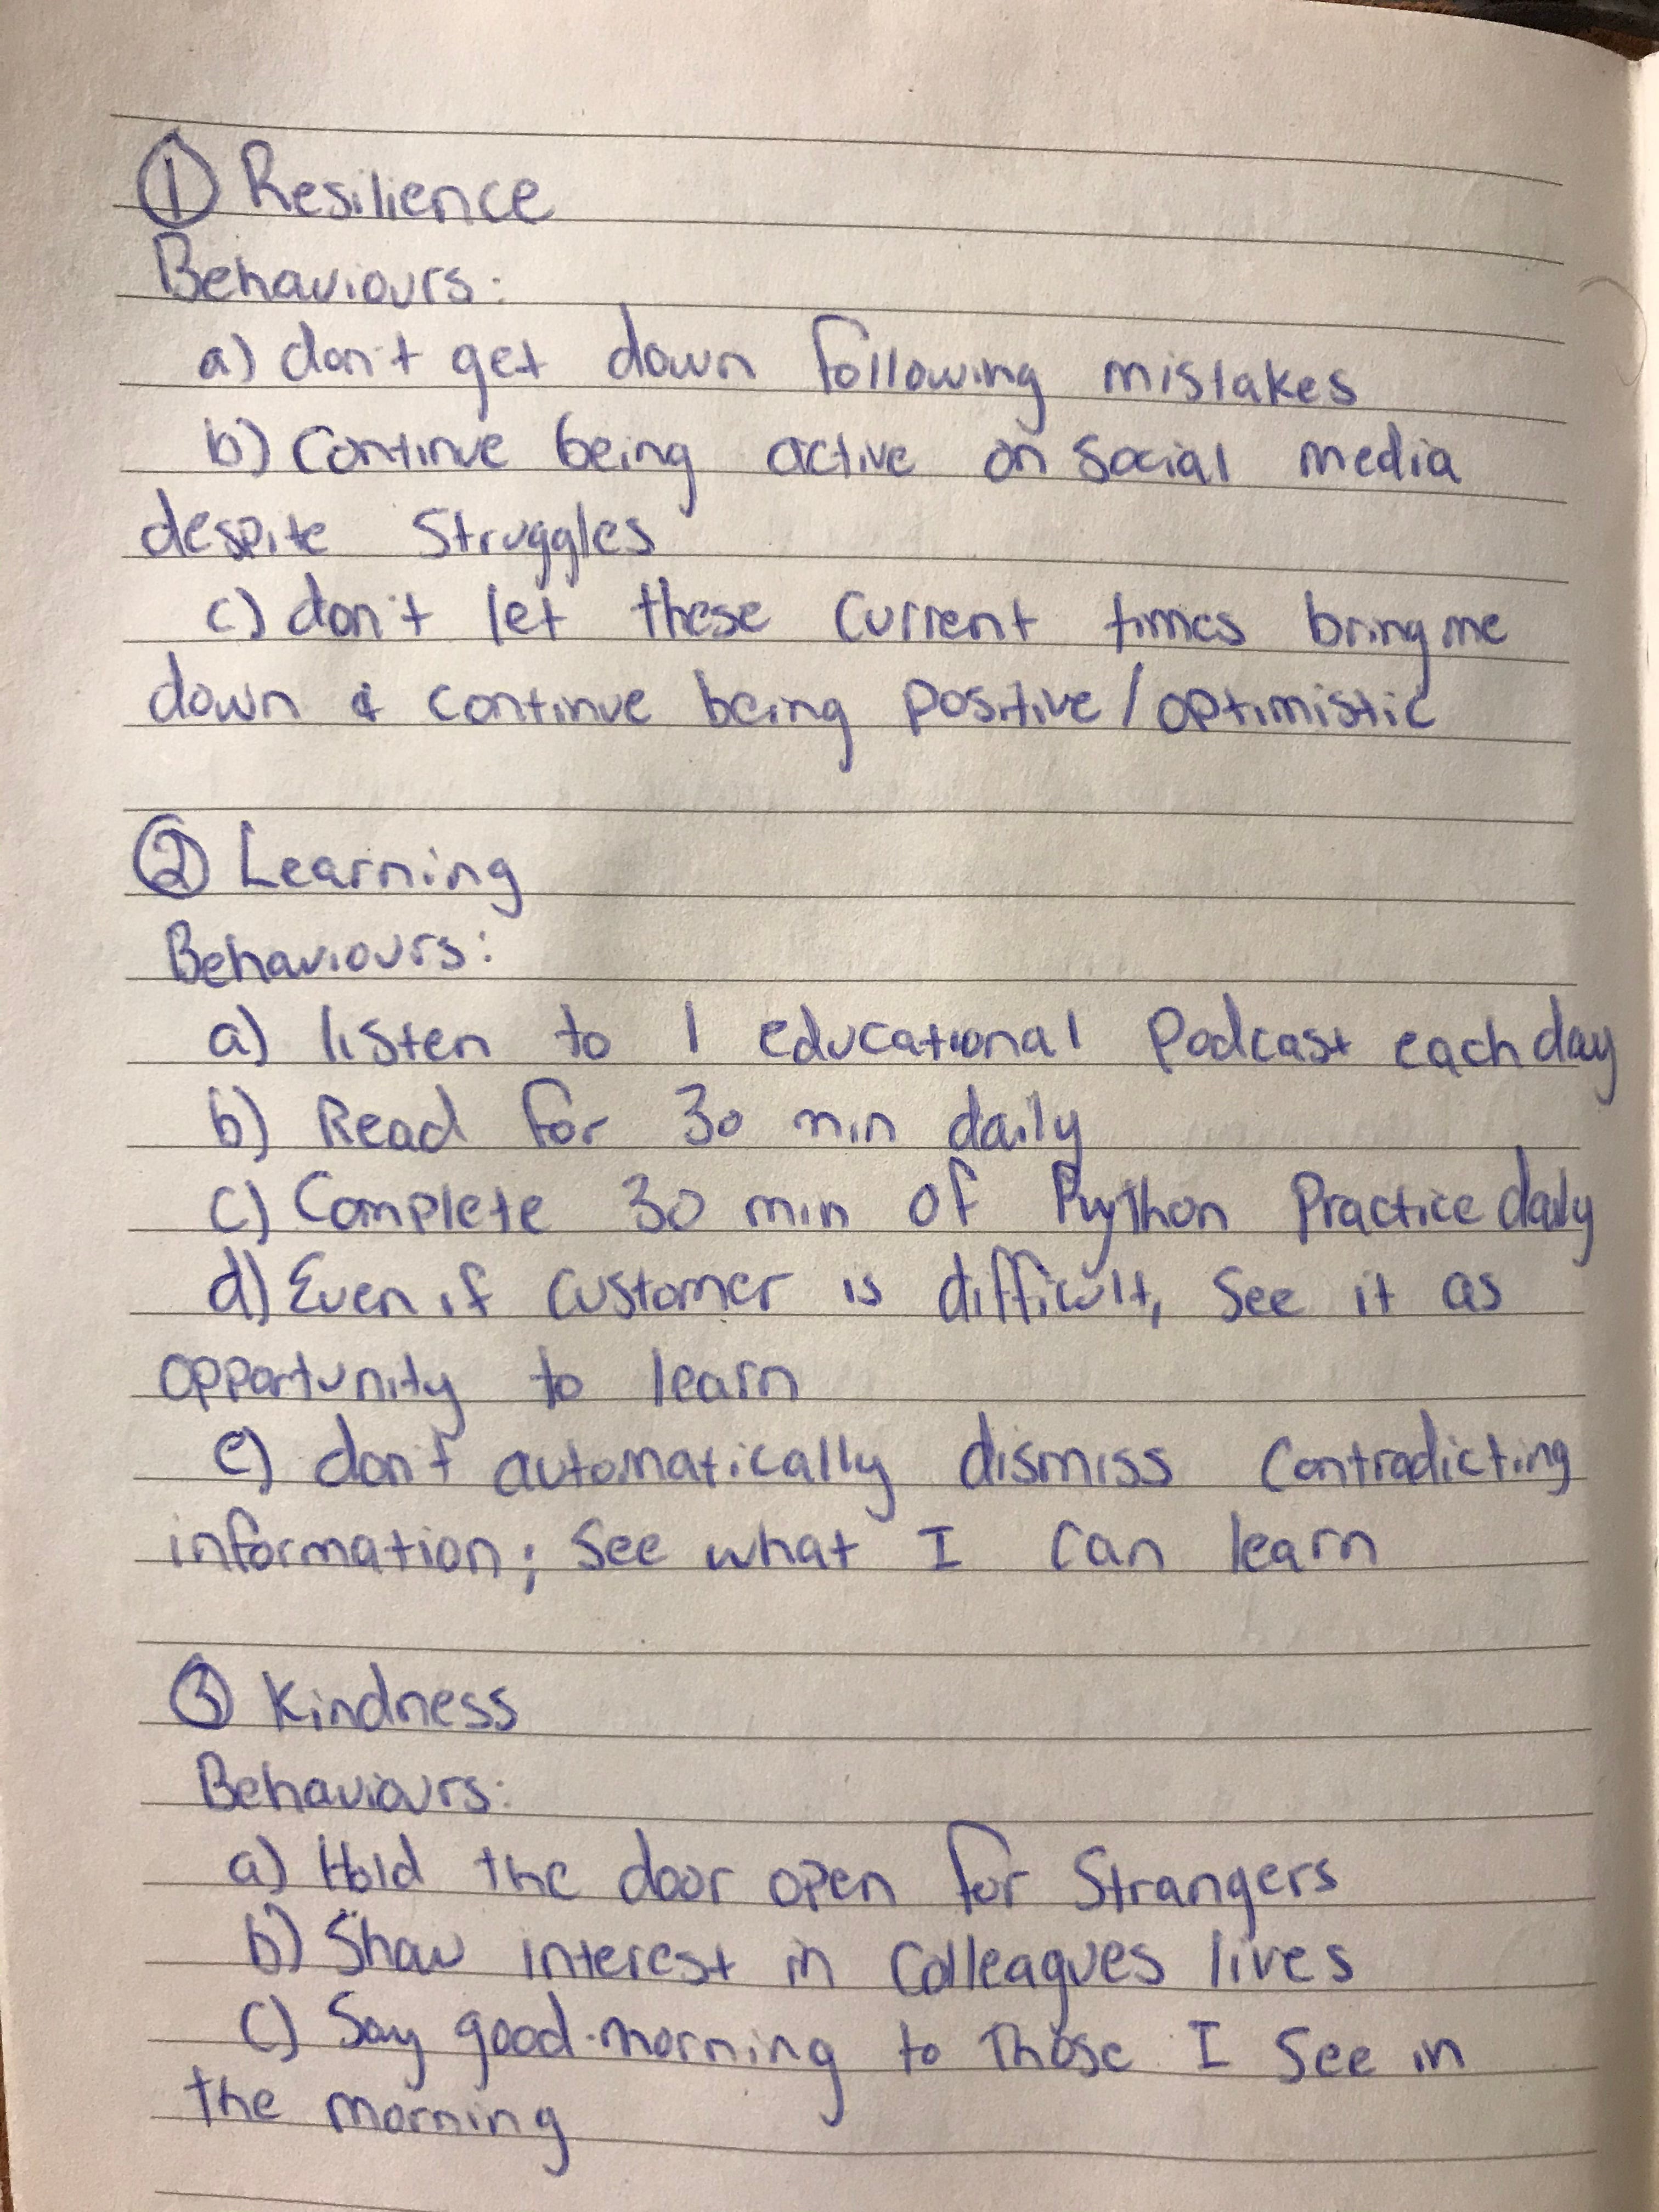 ① Resilience
Behaviours:
a) don't get down following mistakes
b) Continue being active on Social media
despite Struggles
c) don't let these current times bring me
down & continue being positive/optimistic
② Learning
Behaviours:
a) listen to 1 educational Podcast each day
b) Read for 30 min daily
c) Complete 30 min of Python Practice daily
d) Even if customer is difficult, See it as
opportunity to learn
e) don't automatically dismiss Contradicting
information; See what I can learn
③ Kindness
Behaviours:
a) Hold the door open for Strangers
b) Show interest in Colleagues lives
c) Say good-morning to Those I See in
the morning